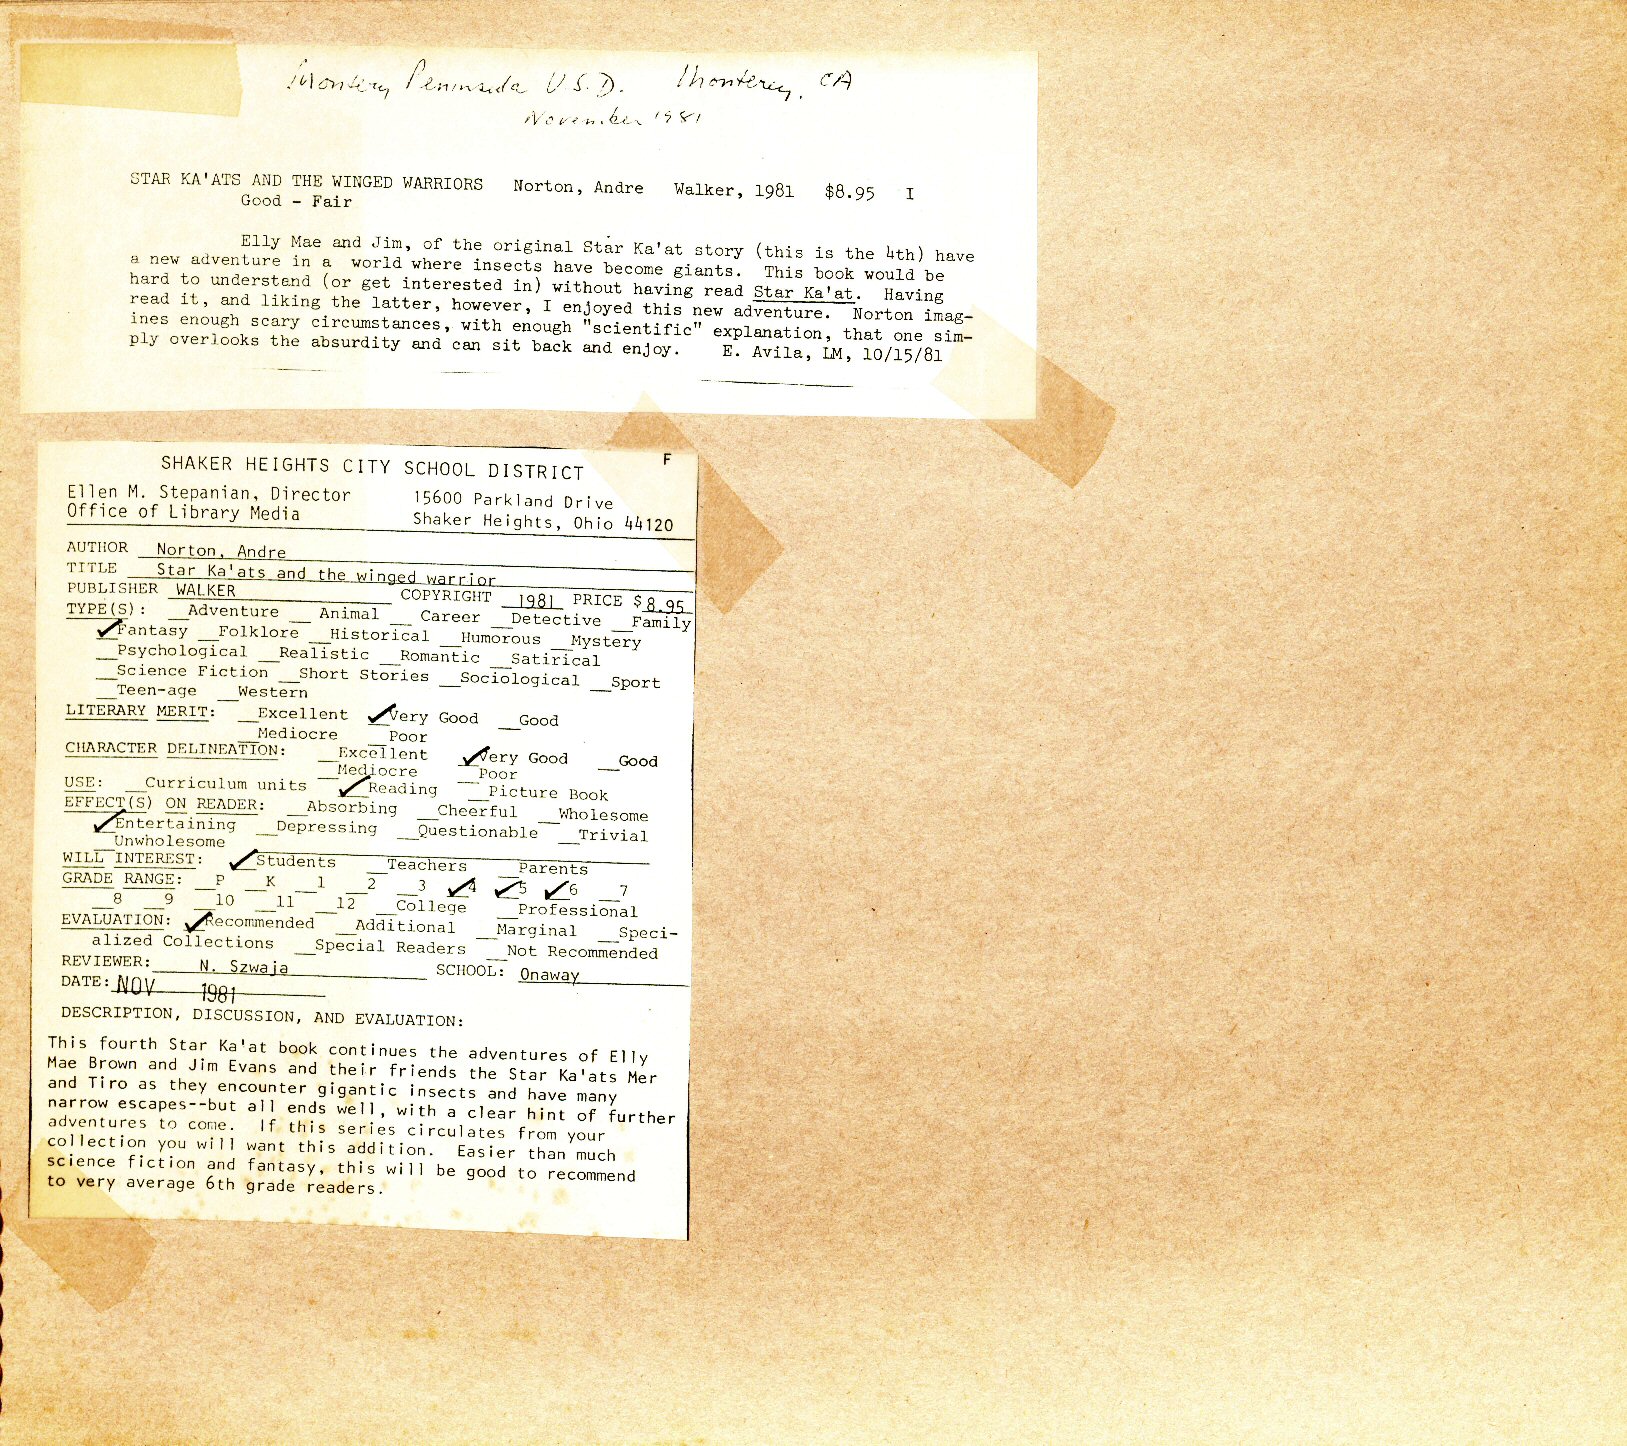 Monterey Peninsula U.S.D. Monterey, CA
November 1981
STAR KA'ATS AND THE WINGED WARRIORS Norton, Andre Walker, 1981 $8.95 I
Good - Fair
Elly Mae and Jim, of the original Star Ka'at story (this is the 4th) have
a new adventure in a world where insects have become giants. This book would be
hard to understand (or get interested in) without having read Star Ka'at. Having
read it, and liking the latter, however, I enjoyed this new adventure. Norton imag-
ines enough scary circumstances, with enough "scientific" explanation, that one sim-
ply overlooks the absurdity and can sit back and enjoy. E. Avila, LM, 10/15/81
F
SHAKER HEIGHTS CITY SCHOOL DISTRICT
Ellen M. Stepanian, Director 15600 Parkland Drive
Office of Library Media Shaker Heights, Ohio 44120
AUTHOR Norton, Andre
TITLE Star Ka'ats and the winged warrior
PUBLISHER WALKER COPYRIGHT 1981 PRICE $8.95
TYPE(S): __Adventure __Animal __Career __Detective __Family
✓Fantasy __Folklore __Historical __Humorous __Mystery
__Psychological __Realistic __Romantic __Satirical
__Science Fiction __Short Stories __Sociological __Sport
__Teen-age __Western
LITERARY MERIT: __Excellent ✓Very Good __Good
__Mediocre __Poor
CHARACTER DELINEATION: __Excellent ✓Very Good __Good
__Mediocre __Poor
USE: __Curriculum units ✓Reading __Picture Book
EFFECT(S) ON READER: __Absorbing __Cheerful __Wholesome
✓Entertaining __Depressing __Questionable __Trivial
__Unwholesome
WILL INTEREST: ✓Students __Teachers __Parents
GRADE RANGE: __P __K __1 __2 __3 ✓4 ✓5 ✓6 __7
__8 __9 __10 __11 __12 __College __Professional
EVALUATION: ✓Recommended __Additional __Marginal __Speci-
alized Collections __Special Readers __Not Recommended
REVIEWER: N. Szwaja SCHOOL: Onaway
DATE: NOV 1981
DESCRIPTION, DISCUSSION, AND EVALUATION:
This fourth Star Ka'at book continues the adventures of Elly
Mae Brown and Jim Evans and their friends the Star Ka'ats Mer
and Tiro as they encounter gigantic insects and have many
narrow escapes--but all ends well, with a clear hint of further
adventures to come. If this series circulates from your
collection you will want this addition. Easier than much
science fiction and fantasy, this will be good to recommend
to very average 6th grade readers.